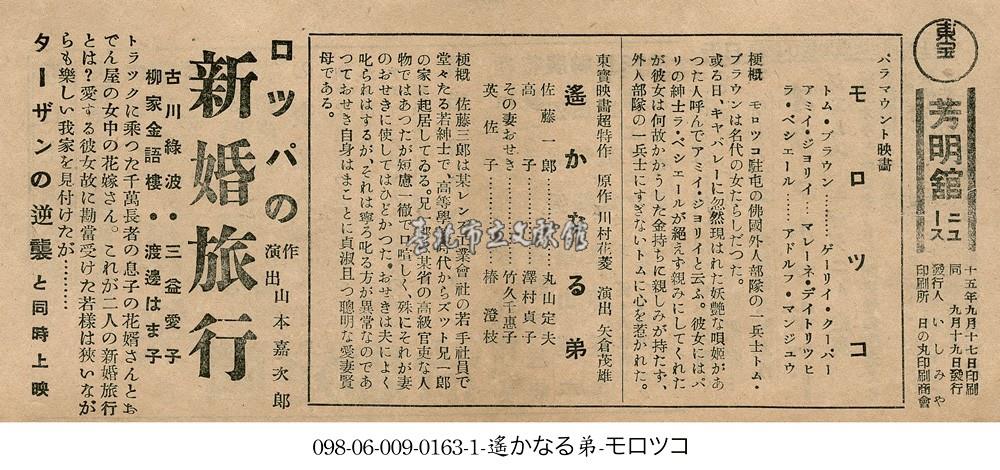 東宝
芳明舘
ニュース
十五年九月十七日印刷
同　九月十九日發行
發行人　いしみや
印刷所　日の丸印刷商會
パラマウント映畫
モロツコ
トム・ブラウン……ゲーリイ・クーパー
アミイ・ジヨリイ……マレーネ・デイトリツヒ
ラ・ベシエール……アドルフ・マンジユウ
梗概　モロツコ駐屯の佛國外人部隊の一兵士トム・
ブラウンは名代の女たらしだつた。
或る日、キヤバレーに忽然現はれた妖艶な唄姫があ
つた人呼んでアミイ・ジヨリイと云ふ。彼女にはパ
リの紳士ラ・ベシエールが絶えず親みにしてくれた
が彼女は何故かかうした金持ちに親しみが持たず、
外人部隊の一兵士にすぎないトムに心を惹かれた。
遙かなる弟
東寶映畫超特作　原作 川村花菱　演出 矢倉茂雄
佐藤一郎………丸山定夫
高子………澤村貞子
その妻おせき………竹久千惠子
英佐子………椿澄枝
梗概　佐藤三郎は某レン　　業會社の若手社員で
堂々たる若紳士で、高等學　時代からズツト兄一郎
の家に起居してゐる。兄一郎　某省の高級官吏な人
物ではあつたが短慮一徹で口喧しく、殊にそれが妻
のおせきに使してはひどかつた。おせきは夫によく
叱られはするが、それは寧ろ叱る方が異常なのであ
つておせき自身はまことに貞淑且つ聰明な愛妻賢
母である。
ロツパの
新婚旅行
作
演出　山本嘉次郎
古川綠波・三益愛子
柳家金語樓・渡邊はま子
トラツクに乘つた千萬長者の息子の花婿さんとお
でん屋の女中の花嫁さん。これが二人の新婚旅行
とは？愛する彼女故に勘當受けた若樣は狹いなが
らも樂しい我家を見付けたが………
ターザンの逆襲と同時上映
臺北市立文獻館
098-06-009-0163-1-遙かなる弟-モロツコ